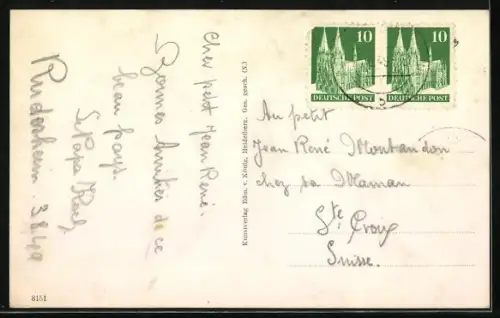 Cher petit Jean René.
Bonnes Amitiés de ce
beau pays.
Papa
Rüdesheim. 3.8.49
Kunstverlag Edm. v. König, Heidelberg. Ges. gesch. (K.)
10
DEUTSCHE POST
10
DEUTSCHE POST
Au petit
Jean René Montandon
chez sa Maman
Ste Croix
Suisse.
8151